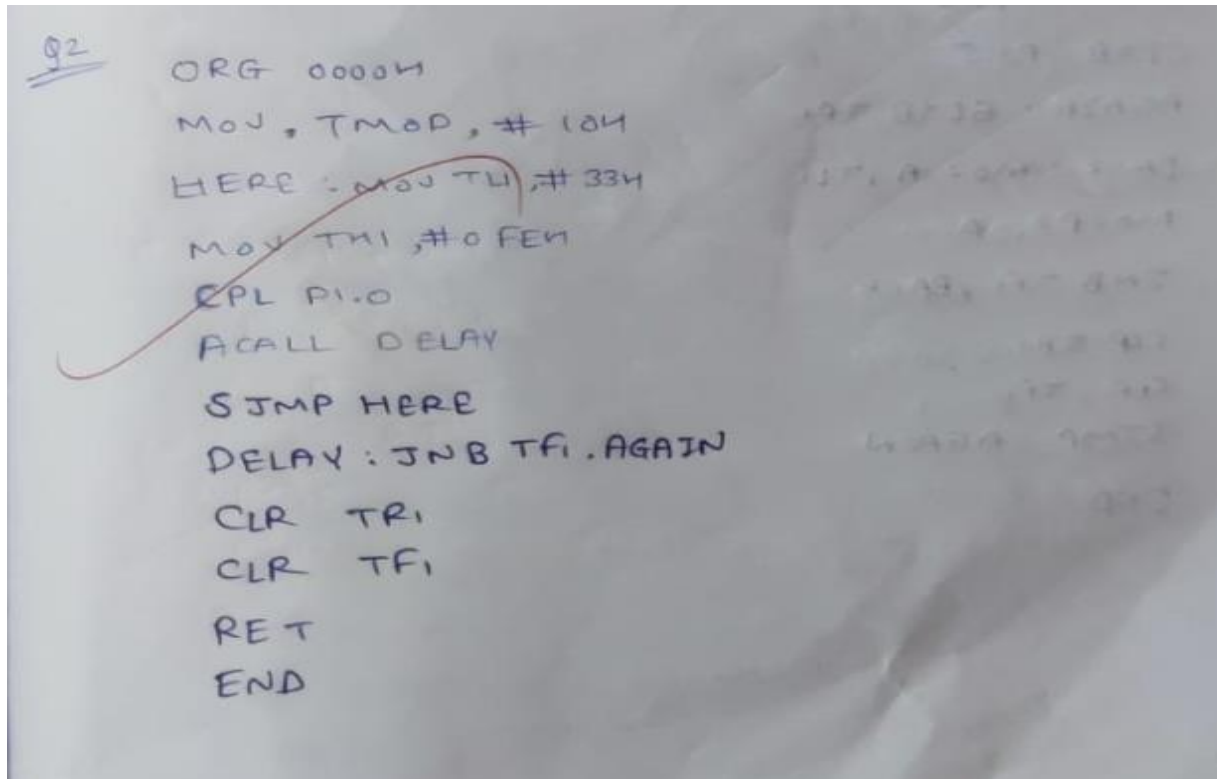 Q2
ORG 0000H
MOV, TMOD, # 10H
HERE : MOV TL1, # 33H
MOV TH1, #0FEH
CPL P1.0
ACALL DELAY
SJMP HERE
DELAY : JNB TF1. AGAIN
CLR TR1
CLR TF1
RET
END